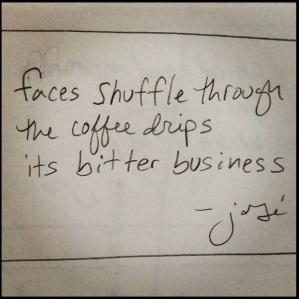 faces shuffle through
the coffee drips
its bitter business
- josé